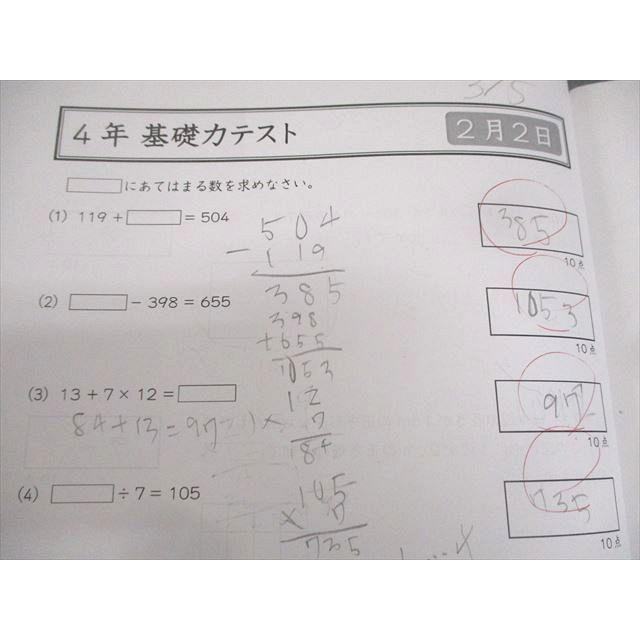 3/5
4年 基礎力テスト 2月2日
にあてはまる数を求めなさい。
(1) 119 + = 504
504
- 119
385
385
10点
(2) - 398 = 655
398
+655
1053
1053
10点
(3) 13 + 7 × 12 =
84+13=97
12
× 7
84
97
10点
(4) ÷ 7 = 105
105
× 7
735
735
10点